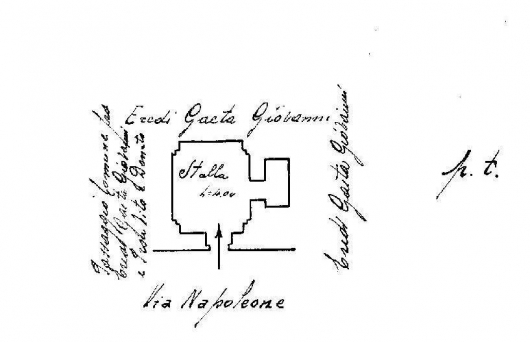 Eredi Gaeta Giovanni
Passaggio Comune fra
Eredi Gaeta Giovanni
e Vito e Donato
Stalla
h=4.00
Eredi Gaeta Giovanni
p. t.
Via Napoleone